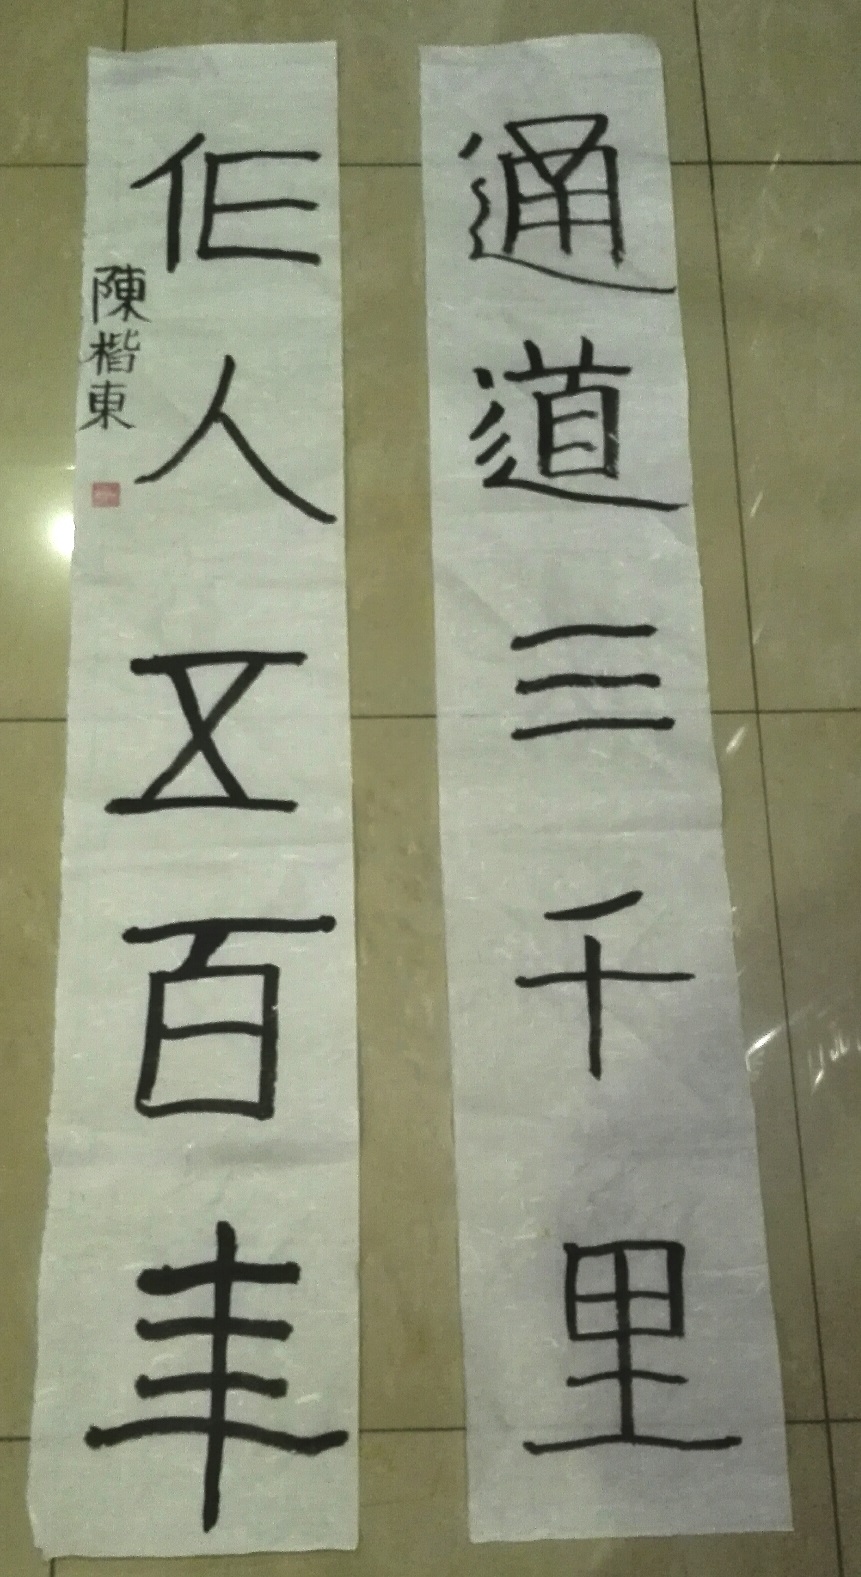 通道三千里
作人五百年
陳楷東